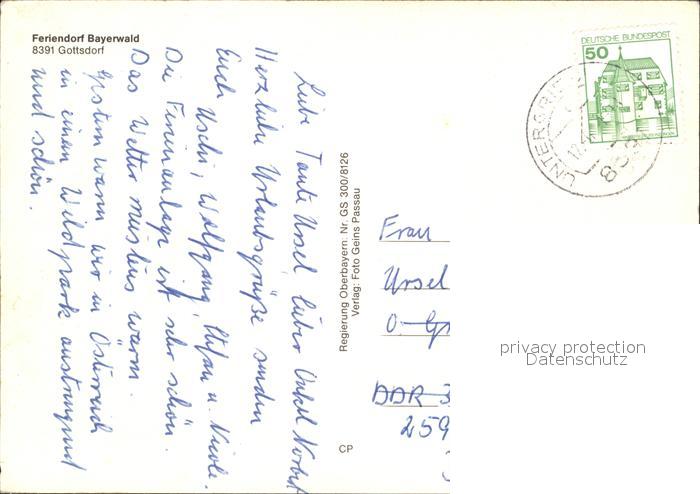 Feriendorf Bayerwald
8391 Gottsdorf
Liebe Tante Ursel, lieber Onkel Norbert
Herzliche Urlaubsgrüße senden
Euch Uschi, Wolfgang, Stefan u. Nicole.
Die Ferienanlage ist sehr schön.
Das Wetter meistens warm.
Gestern waren wir in Österreich
in einem Wildpark anstrengend
und schön.
Regierung Oberbayern: Nr. GS 300/8126
Verlag: Foto Geins Passau
CP
DEUTSCHE BUNDESPOST
50
UNTERGRI
Frau
Ursel
DDR
259
privacy protection
Datenschutz